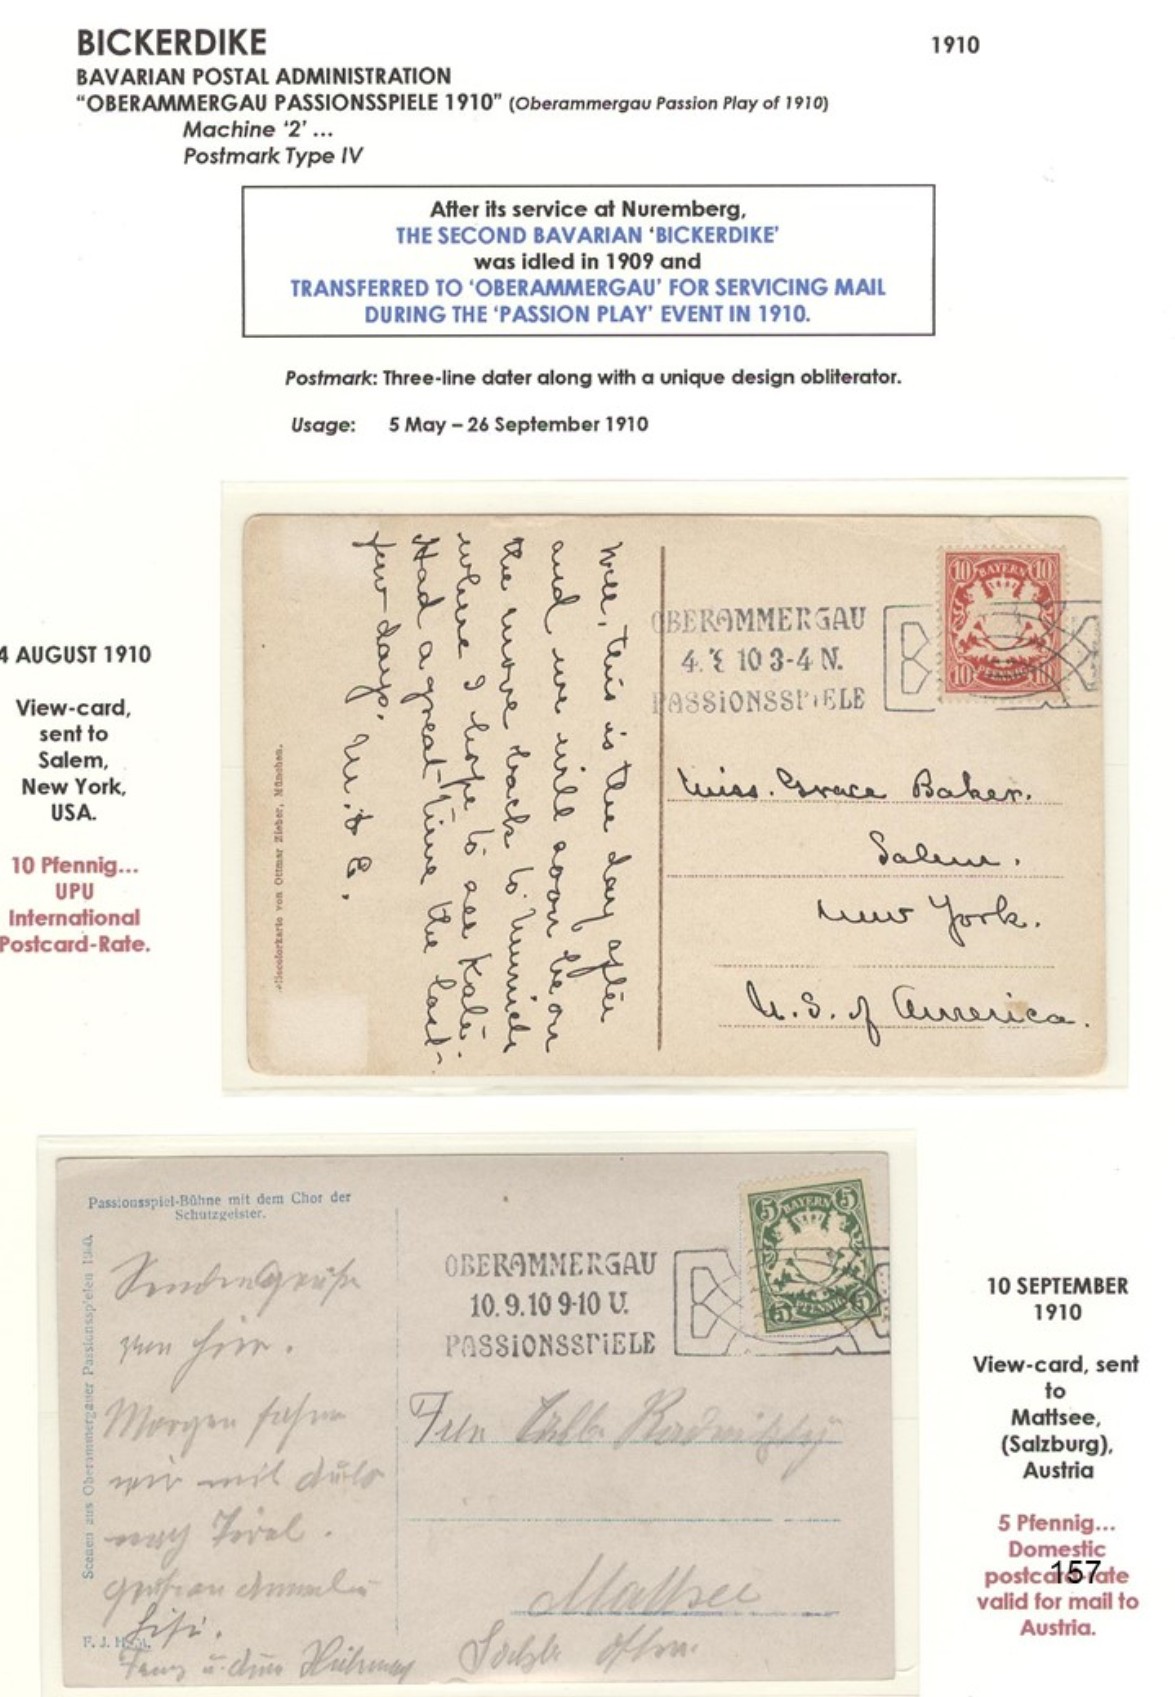 BICKERDIKE
1910
BAVARIAN POSTAL ADMINISTRATION
“OBERAMMERGAU PASSIONSSPIELE 1910” (Oberammergau Passion Play of 1910)
Machine ‘2’ …
Postmark Type IV
After its service at Nuremberg,
THE SECOND BAVARIAN ‘BICKERDIKE’
was idled in 1909 and
TRANSFERRED TO ‘OBERAMMERGAU’ FOR SERVICING MAIL
DURING THE ‘PASSION PLAY’ EVENT IN 1910.
Postmark: Three-line dater along with a unique design obliterator.
Usage: 5 May – 26 September 1910
4 AUGUST 1910
View-card,
sent to
Salem,
New York,
USA.
10 Pfennig…
UPU
International
Postcard-Rate.
Well, this is the day after
and we will soon be on
the move back to Munich
where I hope to see Kate.
Had a great time the last
few days. M. & E.
von Ottmar Zieher, München.
10 BAYERN 10
10 PFENNIG 10
OBERAMMERGAU
4. 8 10 3-4 N.
PASSIONSSPIELE
Miss. Grace Baker.
Salem.
New York.
U. S. of America.
Passionsspiel-Bühne mit dem Chor der
Schutzgeister.
Scenen aus Oberammergauer Passionsspielen 1910.
F. J.
5 BAYERN 5
5 PFENNIG 5
OBERAMMERGAU
10.9.10 9-10 U.
PASSIONSSPIELE
von hier.
Morgen fahren
wir mit Auto
nach Tirol.
Lisi.
Mattsee
10 SEPTEMBER
1910
View-card, sent
to
Mattsee,
(Salzburg),
Austria
5 Pfennig…
Domestic
postcard-rate
valid for mail to
Austria.
157